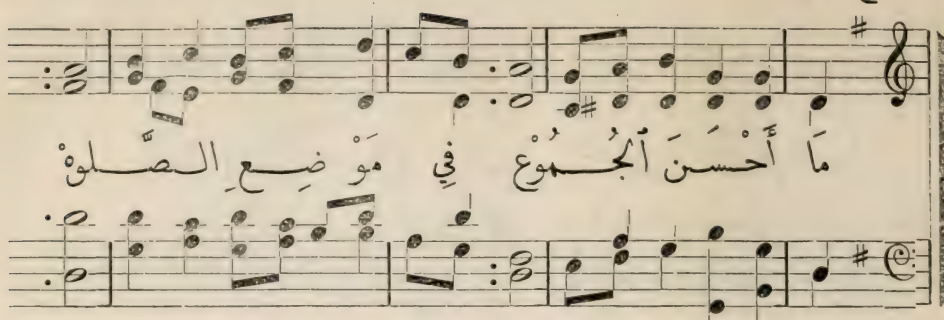 مَا أَحْسَنَ ٱلْجُمُوْعَ فِي مَوْضِعِ الصَّلوةْ